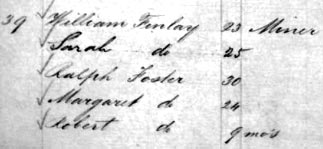 39 William Finlay 23 Miner
Sarah do 25
Ralph Foster 30
Margaret do 24
Robert do 9 mo's